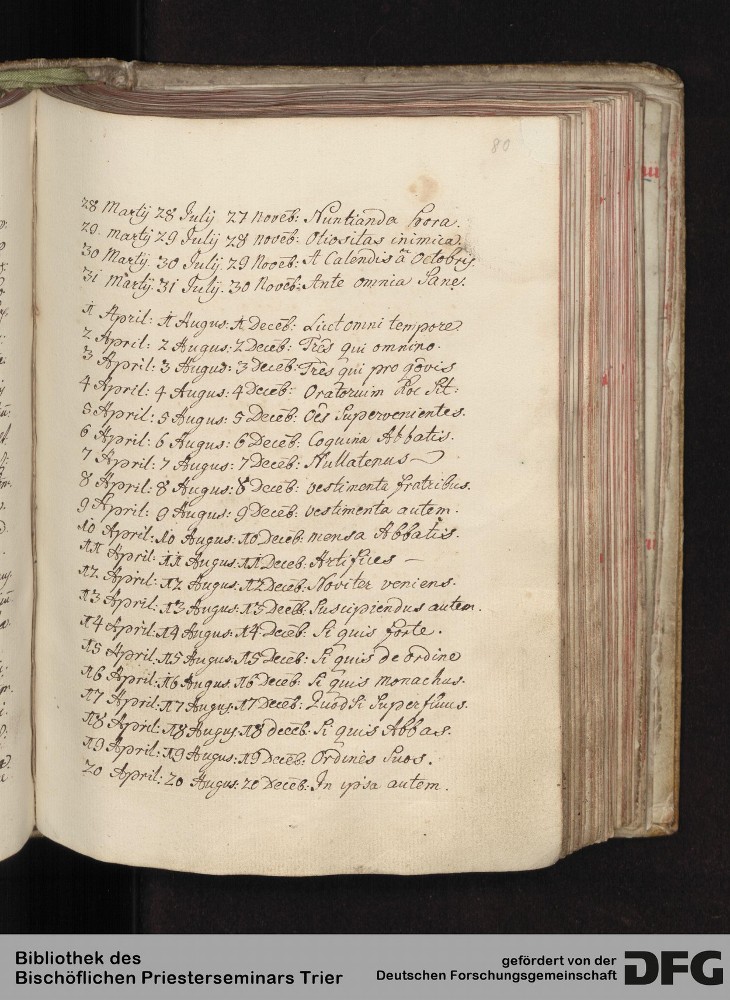 80
28 Martij 28 Julij 27 Novēb: Nuntianda hora.
29. martij 29 Julij 28 novēb: Otiositas inimica.
30 Martij. 30 Julij. 29 Novēb: A Calendis ā Octobris.
31 Martij. 31 Julij. 30 Novēb: Ante omnia Sane.
1 April: 1 Augus: 1 Decēb: Licet omni tempore
2 April: 2 Augus: 2 Decēb: Frēs qui omnino.
3 April: 3 Augus: 3 Decēb: Frēs qui pro
4 April: 4 Augus: 4 Decēb: Oratorium hoc sit:
5 April: 5 Augus: 5 Decēb: Oēs Supervenientes.
6 April: 6 Augus: 6 Decēb: Coquina Abbatis.
7 April: 7 Augus: 7 Decēb: Nullatenus
8 April: 8 Augus: 8 Decēb: vestimenta fratribus.
9 April: 9 Augus: 9 Decēb: vestimenta autem.
10 April: 10 Augus: 10 Decēb: mensa Abbatis.
11 April: 11 Augus: 11 Decēb: Artifices —
12 April: 12 Augus: 12 Decēb: Noviter veniens.
13 April: 13 Augus: 13 Decēb: Suscipiendus autem.
14 April: 14 Augus: 14 Decēb: Si quis forte.
15 April: 15 Augus: 15 Decēb: Si quis de ordine
16 April: 16 Augus: 16 Decēb: Si quis monachus.
17 April: 17 Augus: 17 Decēb: Quodsi Superfluus.
18 April: 18 Augus: 18 decēb: Si quis Abbas.
19 April: 19 Augus: 19 Decēb: Ordines Suos.
20 April: 20 Augus: 20 Decēb: In ipsa autem.
Bibliothek des
Bischöflichen Priesterseminars Trier
gefördert von der
Deutschen Forschungsgemeinschaft
DFG